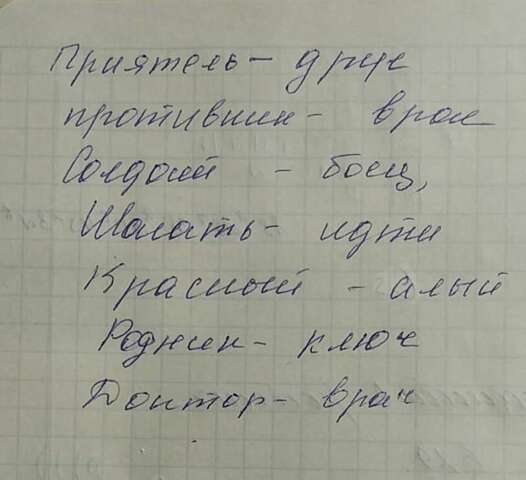 Приятель - друг
противник - враг
Солдат - боец,
Шагать - идти
Красный - алый
Родник - ключ
Доктор - врач